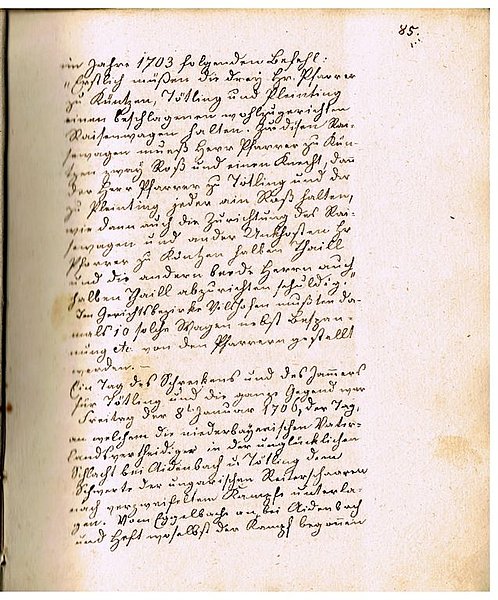 85.
im Jahre 1703 folgenden Befehl:
"Erstlich müßen die drey Hr. Pfarrer
zu Küntzen, Tötling und Pleinting
einen beschlagenen wohlzugerichten
Raisenwagen halten. Zu disen Rai-
sewagen mueß Herr Pfarrer zu Kün-
tzen zway Roß und einen Knecht, dan
der Herr Pfarrer zu Tötling und der
zu Pleinting jeder ain Roß halten,
wie dann auch die Zurichtung des Rai-
sewagen und ander Unkhosten Hr
Pfarrer zu Küntzen halben Thaill
und die andern beede Herrn auch
halben Thaill abzurichten schuldig."
Im Gerichtsbezirke Vilshofen mußten da-
mals 10 solche Wagen nebst Bespan-
nung etc. von den Pfarrern gestellt
werden. —
Ein Tag des Schreckens und des Jammers
für Tötling und die ganze Gegend war
Freitag der 8t. Januar 1706, der Tag,
an welchem die niederbayerischen Vater-
landsvertheidiger in der unglücklichen
Schlacht bei Aidenbach u Tötling dem
Schwerte der ungarischen Reiterschaaren
nach verzweifeltem Kampfe unterla-
gen. Vom Eggelbach an bei Aidenbach
und Heft woselbst der Kampf begonnen